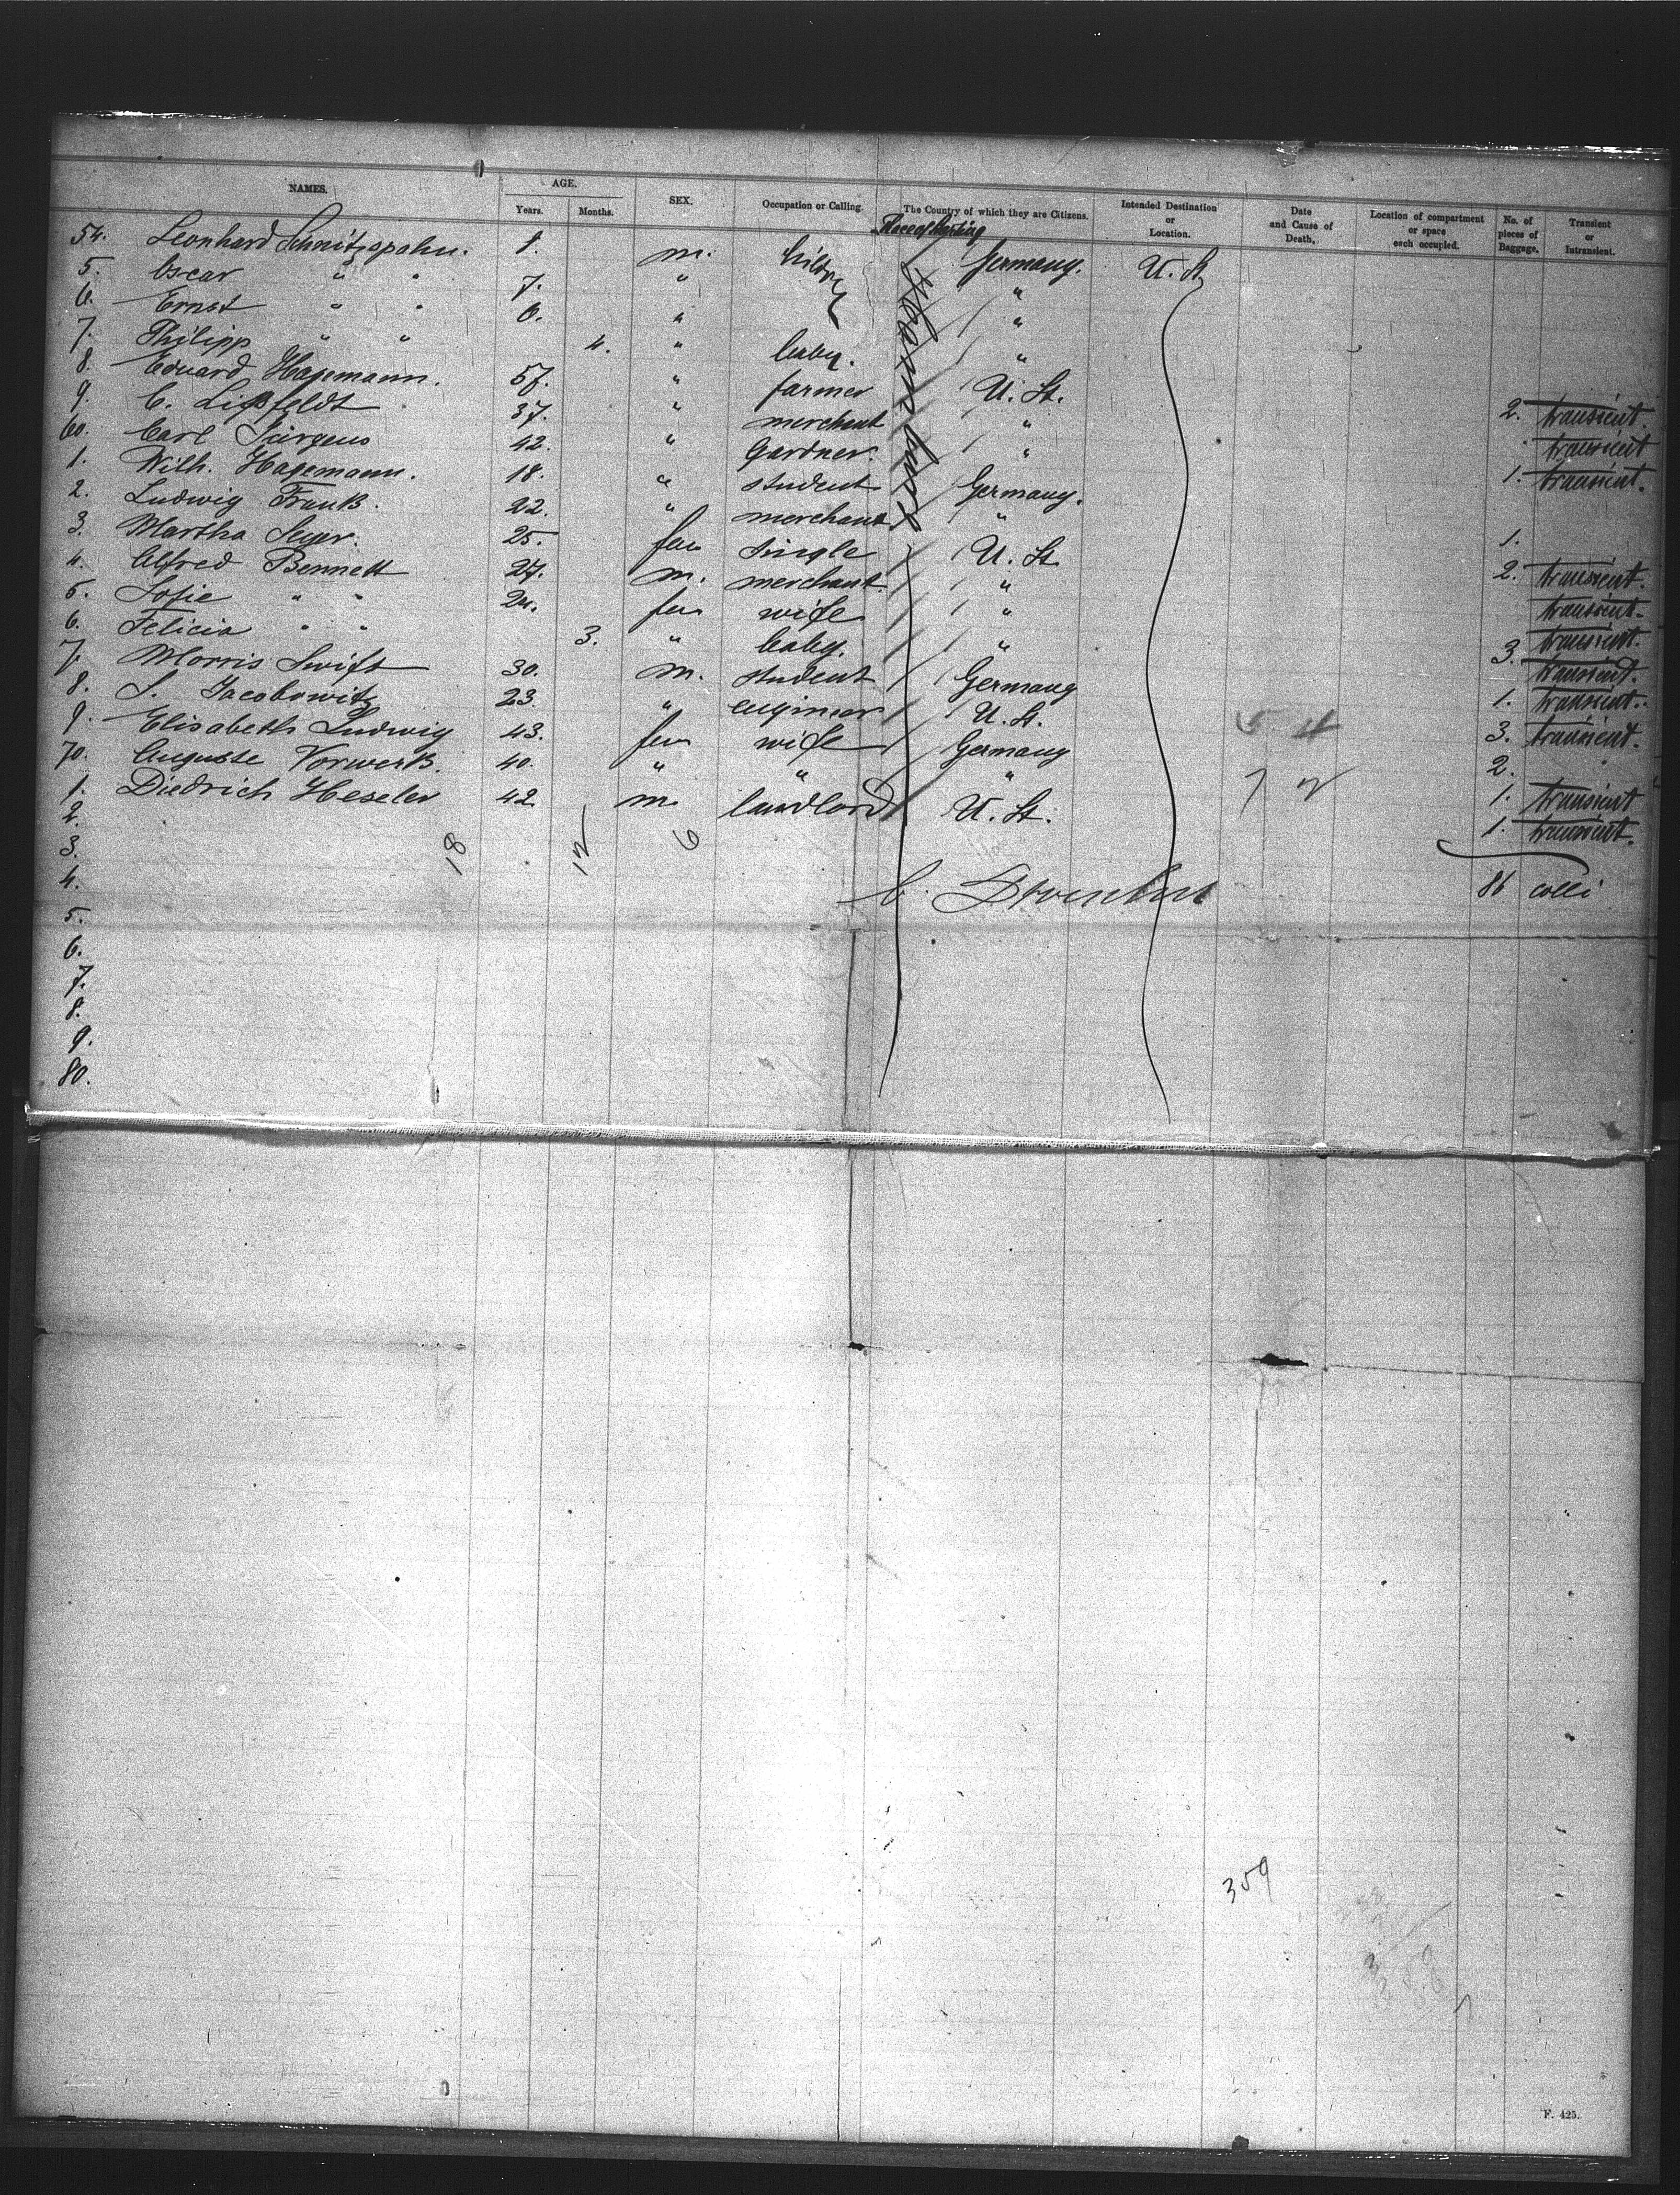 NAMES. AGE. SEX. Occupation or Calling. The Country of which they are Citizens. Intended Destination or Location. Date and Cause of Death. Location of compartment or space each occupied. No. of pieces of Baggage. Transient or Intransient.
Years. Months.
54. Leonhard Schnitzspahn. 8. m. Germany. U. St.
5. Oscar " " 7. " "
6. Ernst " " 6. " "
7. Philipp " " 4. " baby. "
8. Eduard Hagemann. 57. " farmer U. St. 2. transient.
9. C. Lißfeldt 37. " merchant " transient
60. Carl Jürgens 42. " Gardner. " 1. transient.
1. Wilh. Hagemann. 18. " student Germany.
2. Ludwig Frank. 22. " merchant " 1.
3. Martha Seyer. 25. fem single U. St. 2. transient.
4. Alfred Bennett 27. m. merchant. " transient.
5. Sofie " " 24. fem wife " transient.
6. Felicia " " 3. " baby. " 3. transient.
7. Morris Swift 30. m. student Germany 1. transient.
8. S. Jacobowitz 23. " engineer U. St. 3. transient.
9. Elisabeth Ludwig 43. fem wife Germany 2.
70. Auguste Vorwerk. 40. " " " 1. transient
1. Diedrich Heseler 42. m. landlord U. St. 1. transient.
2.
3. 18 12 6
4. 86 colli
5.
6.
7.
8.
9.
80.
5 4
7 2
359
F. 425.